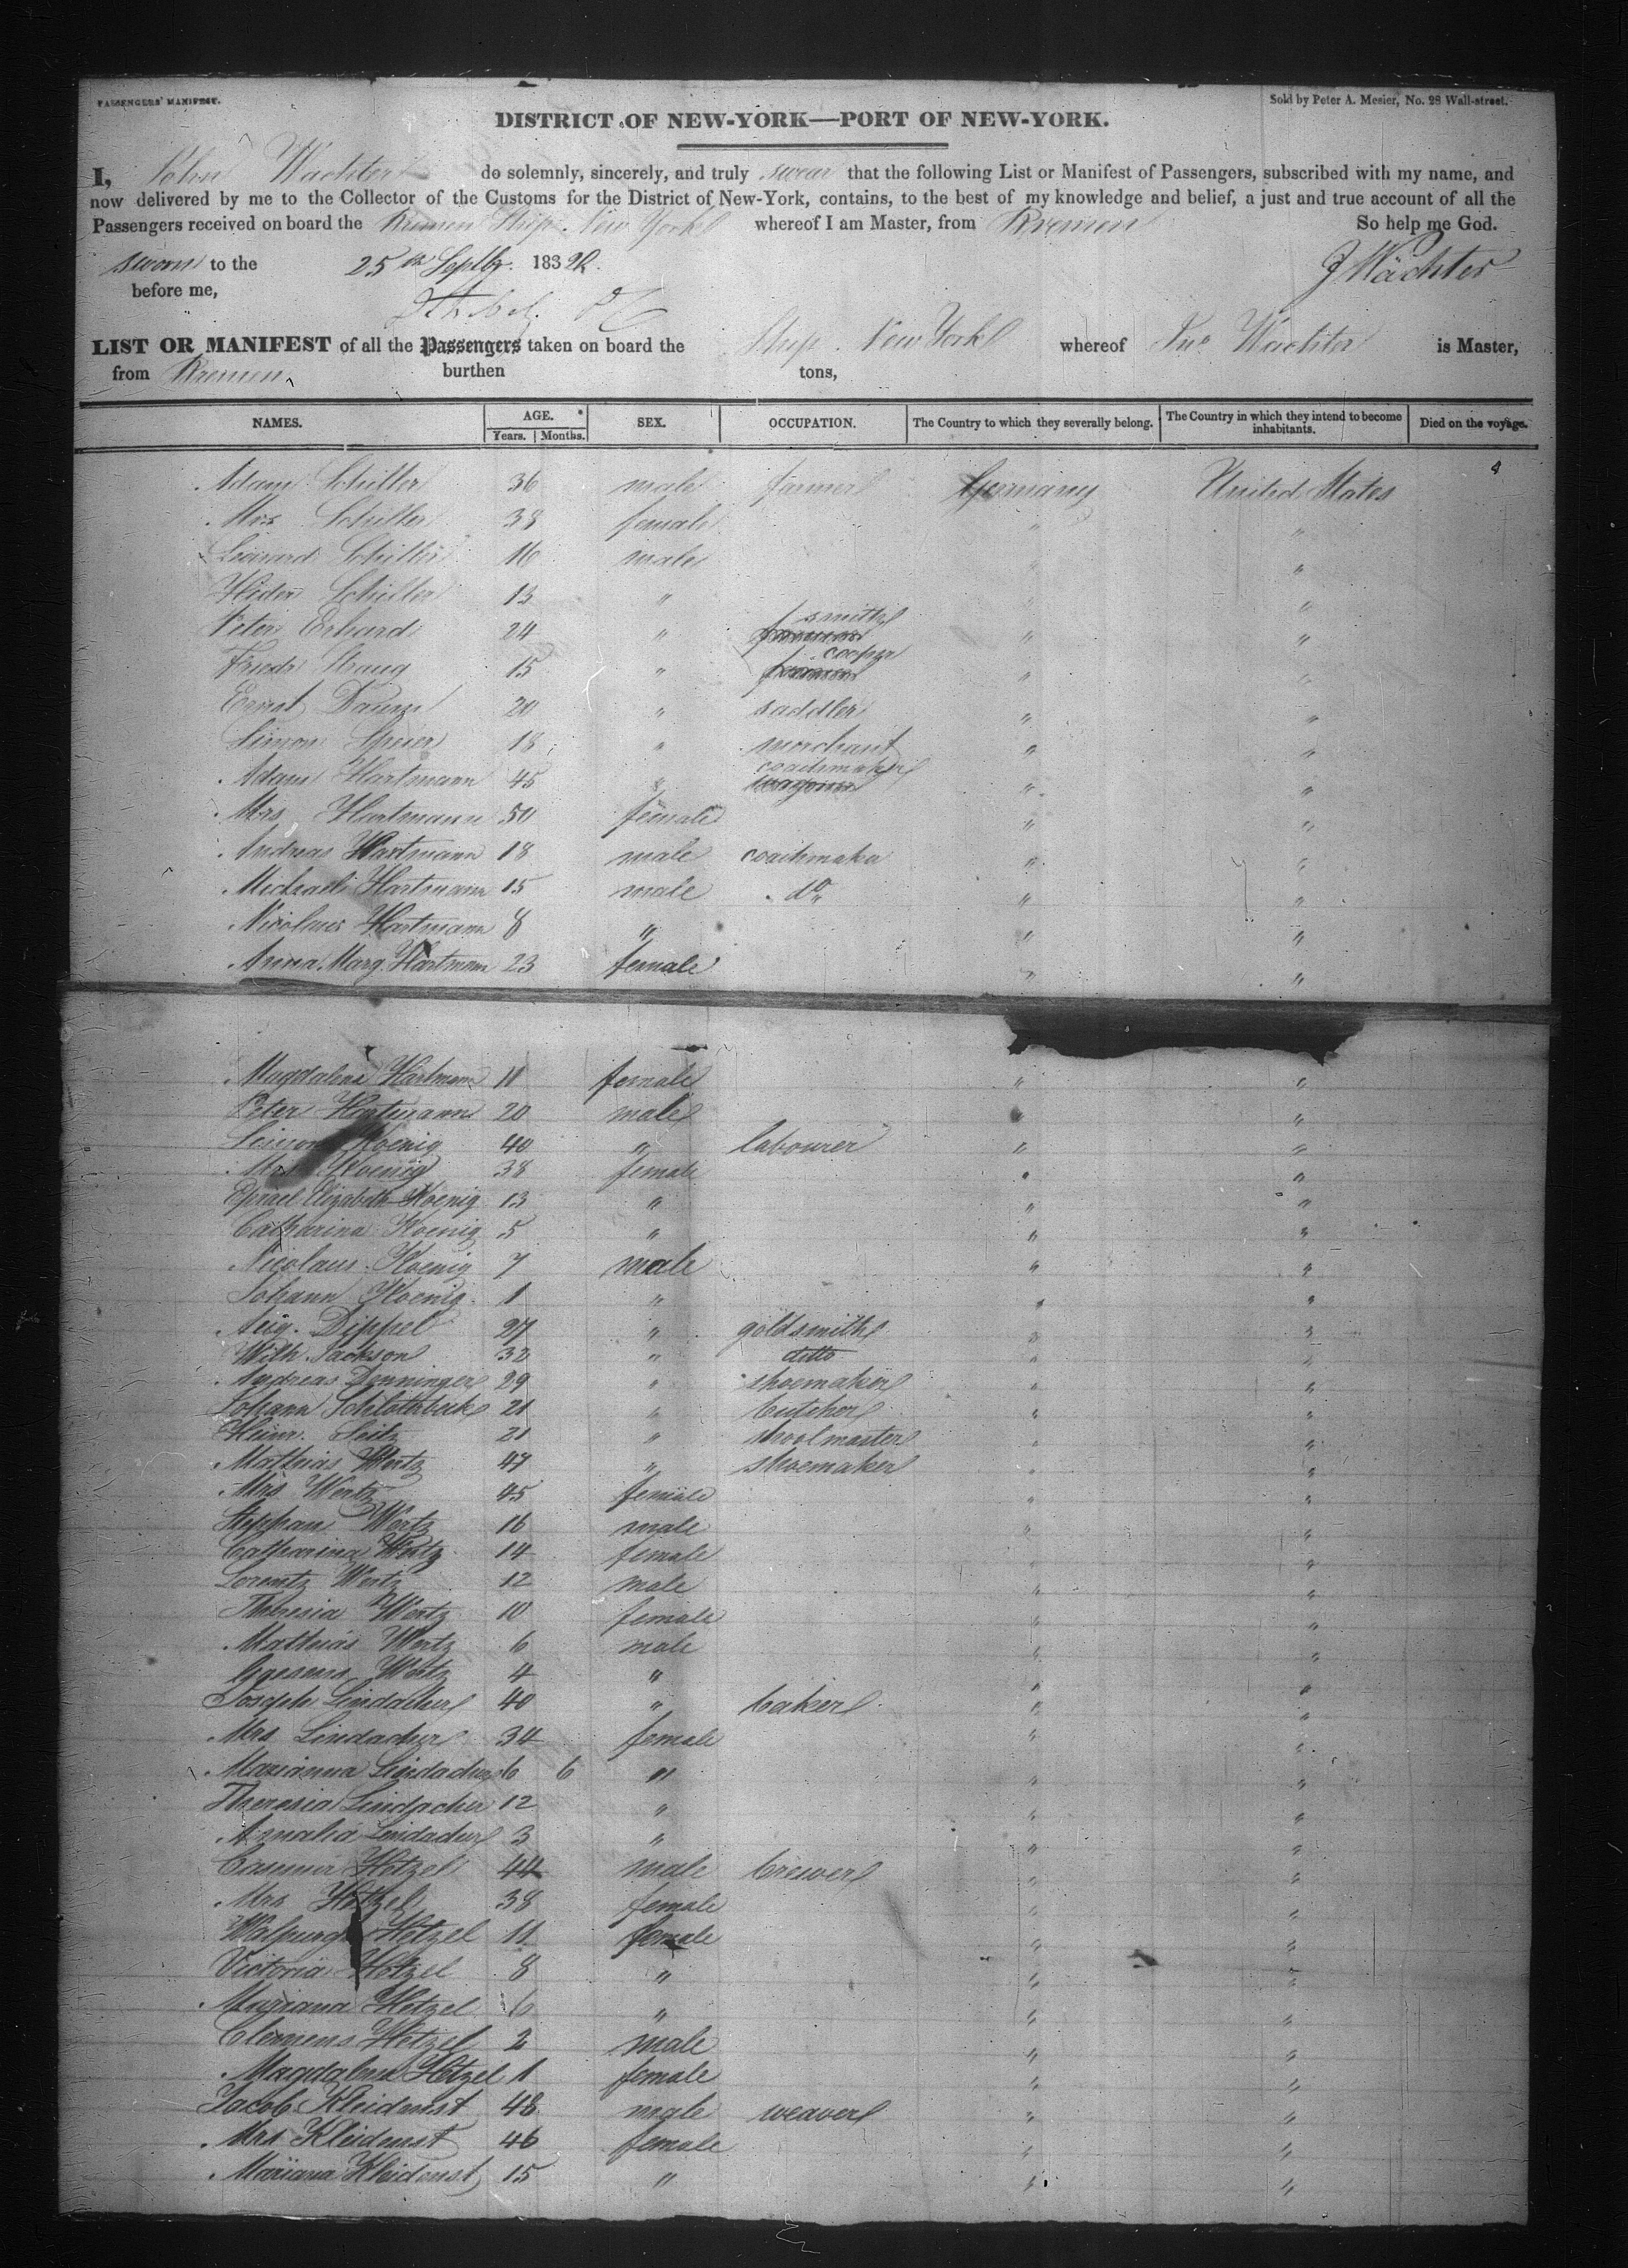 PASSENGERS' MANIFEST.
Sold by Peter A. Mesier, No. 28 Wall-street.
DISTRICT OF NEW-YORK—PORT OF NEW-YORK.
I, John Wachter do solemnly, sincerely, and truly swear that the following List or Manifest of Passengers, subscribed with my name, and
now delivered by me to the Collector of the Customs for the District of New-York, contains, to the best of my knowledge and belief, a just and true account of all the
Passengers received on board the Bremen Ship New York whereof I am Master, from Bremen So help me God.
sworn to the 25th Septbr. 1832
before me, J Wächter
LIST OR MANIFEST of all the Passengers taken on board the Ship New York whereof Jno Wachter is Master,
from Bremen burthen tons,
NAMES. AGE. Years. Months. SEX. OCCUPATION. The Country to which they severally belong. The Country in which they intend to become inhabitants. Died on the voyage.
Adam Schiller 36 male farmer Germany United States
Mrs Schiller 38 female " "
Leonard Schiller 16 male " "
Schiller 13 " "
Peter Erhard 24 " smith " "
Friedr Straug 15 " cooper " "
Ernst 20 " saddler " "
Simon Speier 18 " merchant " "
Adam Hartmann 45 " coachmaker " "
Mrs Hartmann 50 female " "
Andreas Hartmann 18 male coachmaker " "
Michael Hartmann 15 male do " "
Nicolaus Hartmann 8 " " "
Anna Marg Hartmann 23 female " "
Magdalena Hartmann 11 female " "
Peter Hartmann 20 male " "
Simon Koenig 40 " labourer " "
Mrs Koenig 38 female " "
Elizabeth Koenig 13 " " "
Catharina Koenig 5 " " "
Nicolaus Koenig 7 male " "
Johann Koenig 1 " " "
Aug. Dippel 27 " goldsmith " "
Wilh. Jackson 32 " ditto " "
Andreas Denninger 29 " shoemaker " "
Johann Schlothbeck 21 " butcher " "
Heinr. Seitz 21 " shoolmaster " "
Mathias Wertz 47 " shoemaker " "
Mrs Wertz 45 female " "
Stephan Wertz 16 male " "
Catharina Wertz 14 female " "
Lorentz Wertz 12 male " "
Theresia Wertz 10 female " "
Mathias Wertz 6 male " "
Wertz 4 " " "
Joseph Lindacher 40 " baker " "
Mrs Lindacher 34 female " "
Marianna Lindacher 6 6 " " "
Theresia Lindacher 12 " " "
Amalia Lindacher 3 " " "
Casimir Hetzel 44 male brewer " "
Mrs Hetzel 38 female " "
Walpurga Hetzel 11 female " "
Victoria Hetzel 8 " " "
Mariana Hetzel 6 " " "
Clemens Hetzel 2 male " "
Magdalena Hetzel 1 female " "
Jacob Kleidenst 48 male weaver " "
Mrs Kleidenst 46 female " "
Mariana Kleidenst 15 " " "